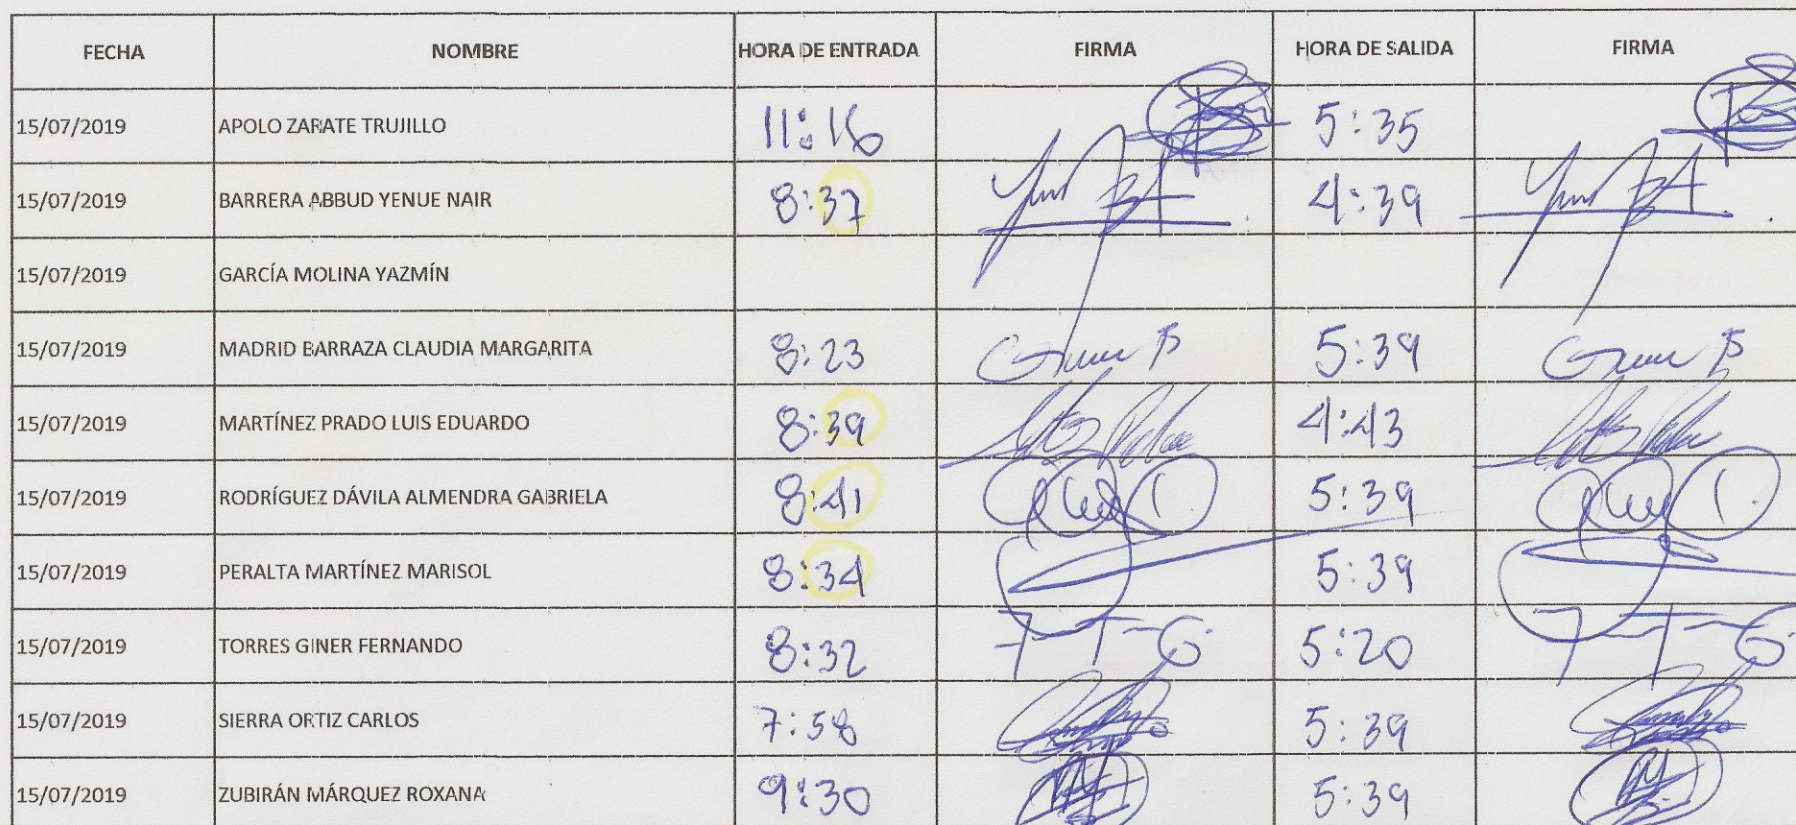 FECHA NOMBRE HORA DE ENTRADA FIRMA HORA DE SALIDA FIRMA
15/07/2019 APOLO ZARATE TRUJILLO 11:16 5:35
15/07/2019 BARRERA ABBUD YENUE NAIR 8:37 4:39
15/07/2019 GARCÍA MOLINA YAZMÍN
15/07/2019 MADRID BARRAZA CLAUDIA MARGARITA 8:23 5:39
15/07/2019 MARTÍNEZ PRADO LUIS EDUARDO 8:39 4:43
15/07/2019 RODRÍGUEZ DÁVILA ALMENDRA GABRIELA 8:41 5:39
15/07/2019 PERALTA MARTÍNEZ MARISOL 8:34 5:39
15/07/2019 TORRES GINER FERNANDO 8:32 5:20
15/07/2019 SIERRA ORTIZ CARLOS 7:58 5:39
15/07/2019 ZUBIRÁN MÁRQUEZ ROXANA 9:30 5:39